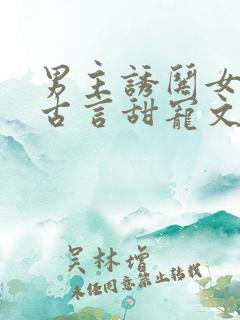 男主誘鬨女
古言甜寵文
吴林增
未经同意禁止转载